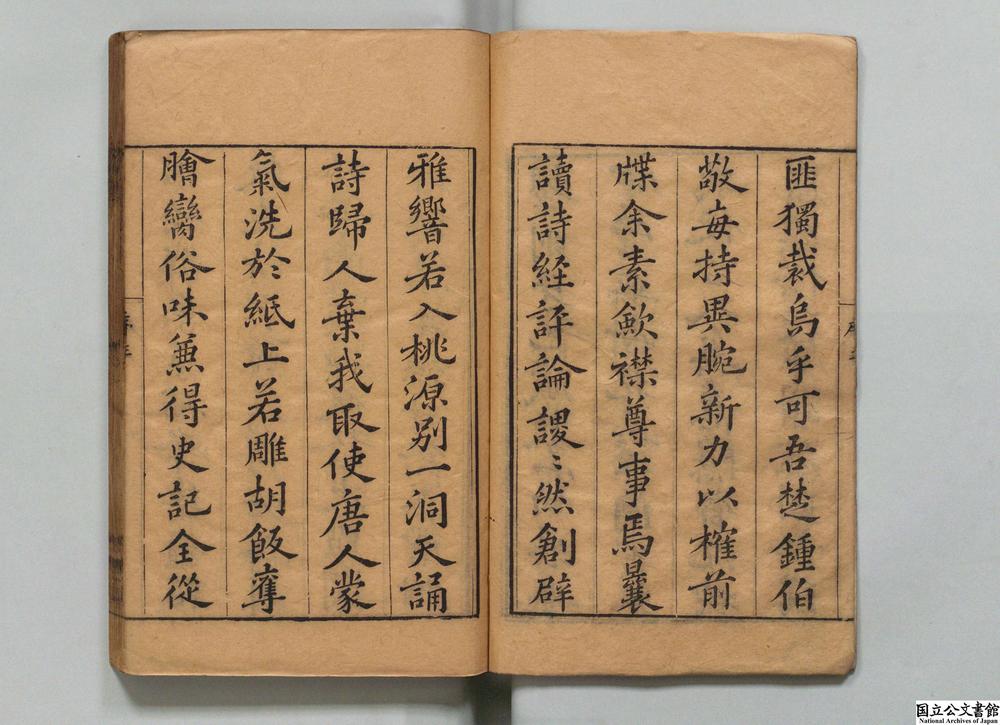 匪獨裁烏乎可吾楚鍾伯
敬每持異腕新力以榷前
牒余素歛襟尊事焉曩
讀詩經評論謖〻然創辟
雅響若入桃源別一洞天誦
詩歸人棄我取使唐人蒙
氣洗於紙上若雕胡飯奪
膾臠俗味兼得史記全從
国立公文書館
National Archives of Japan